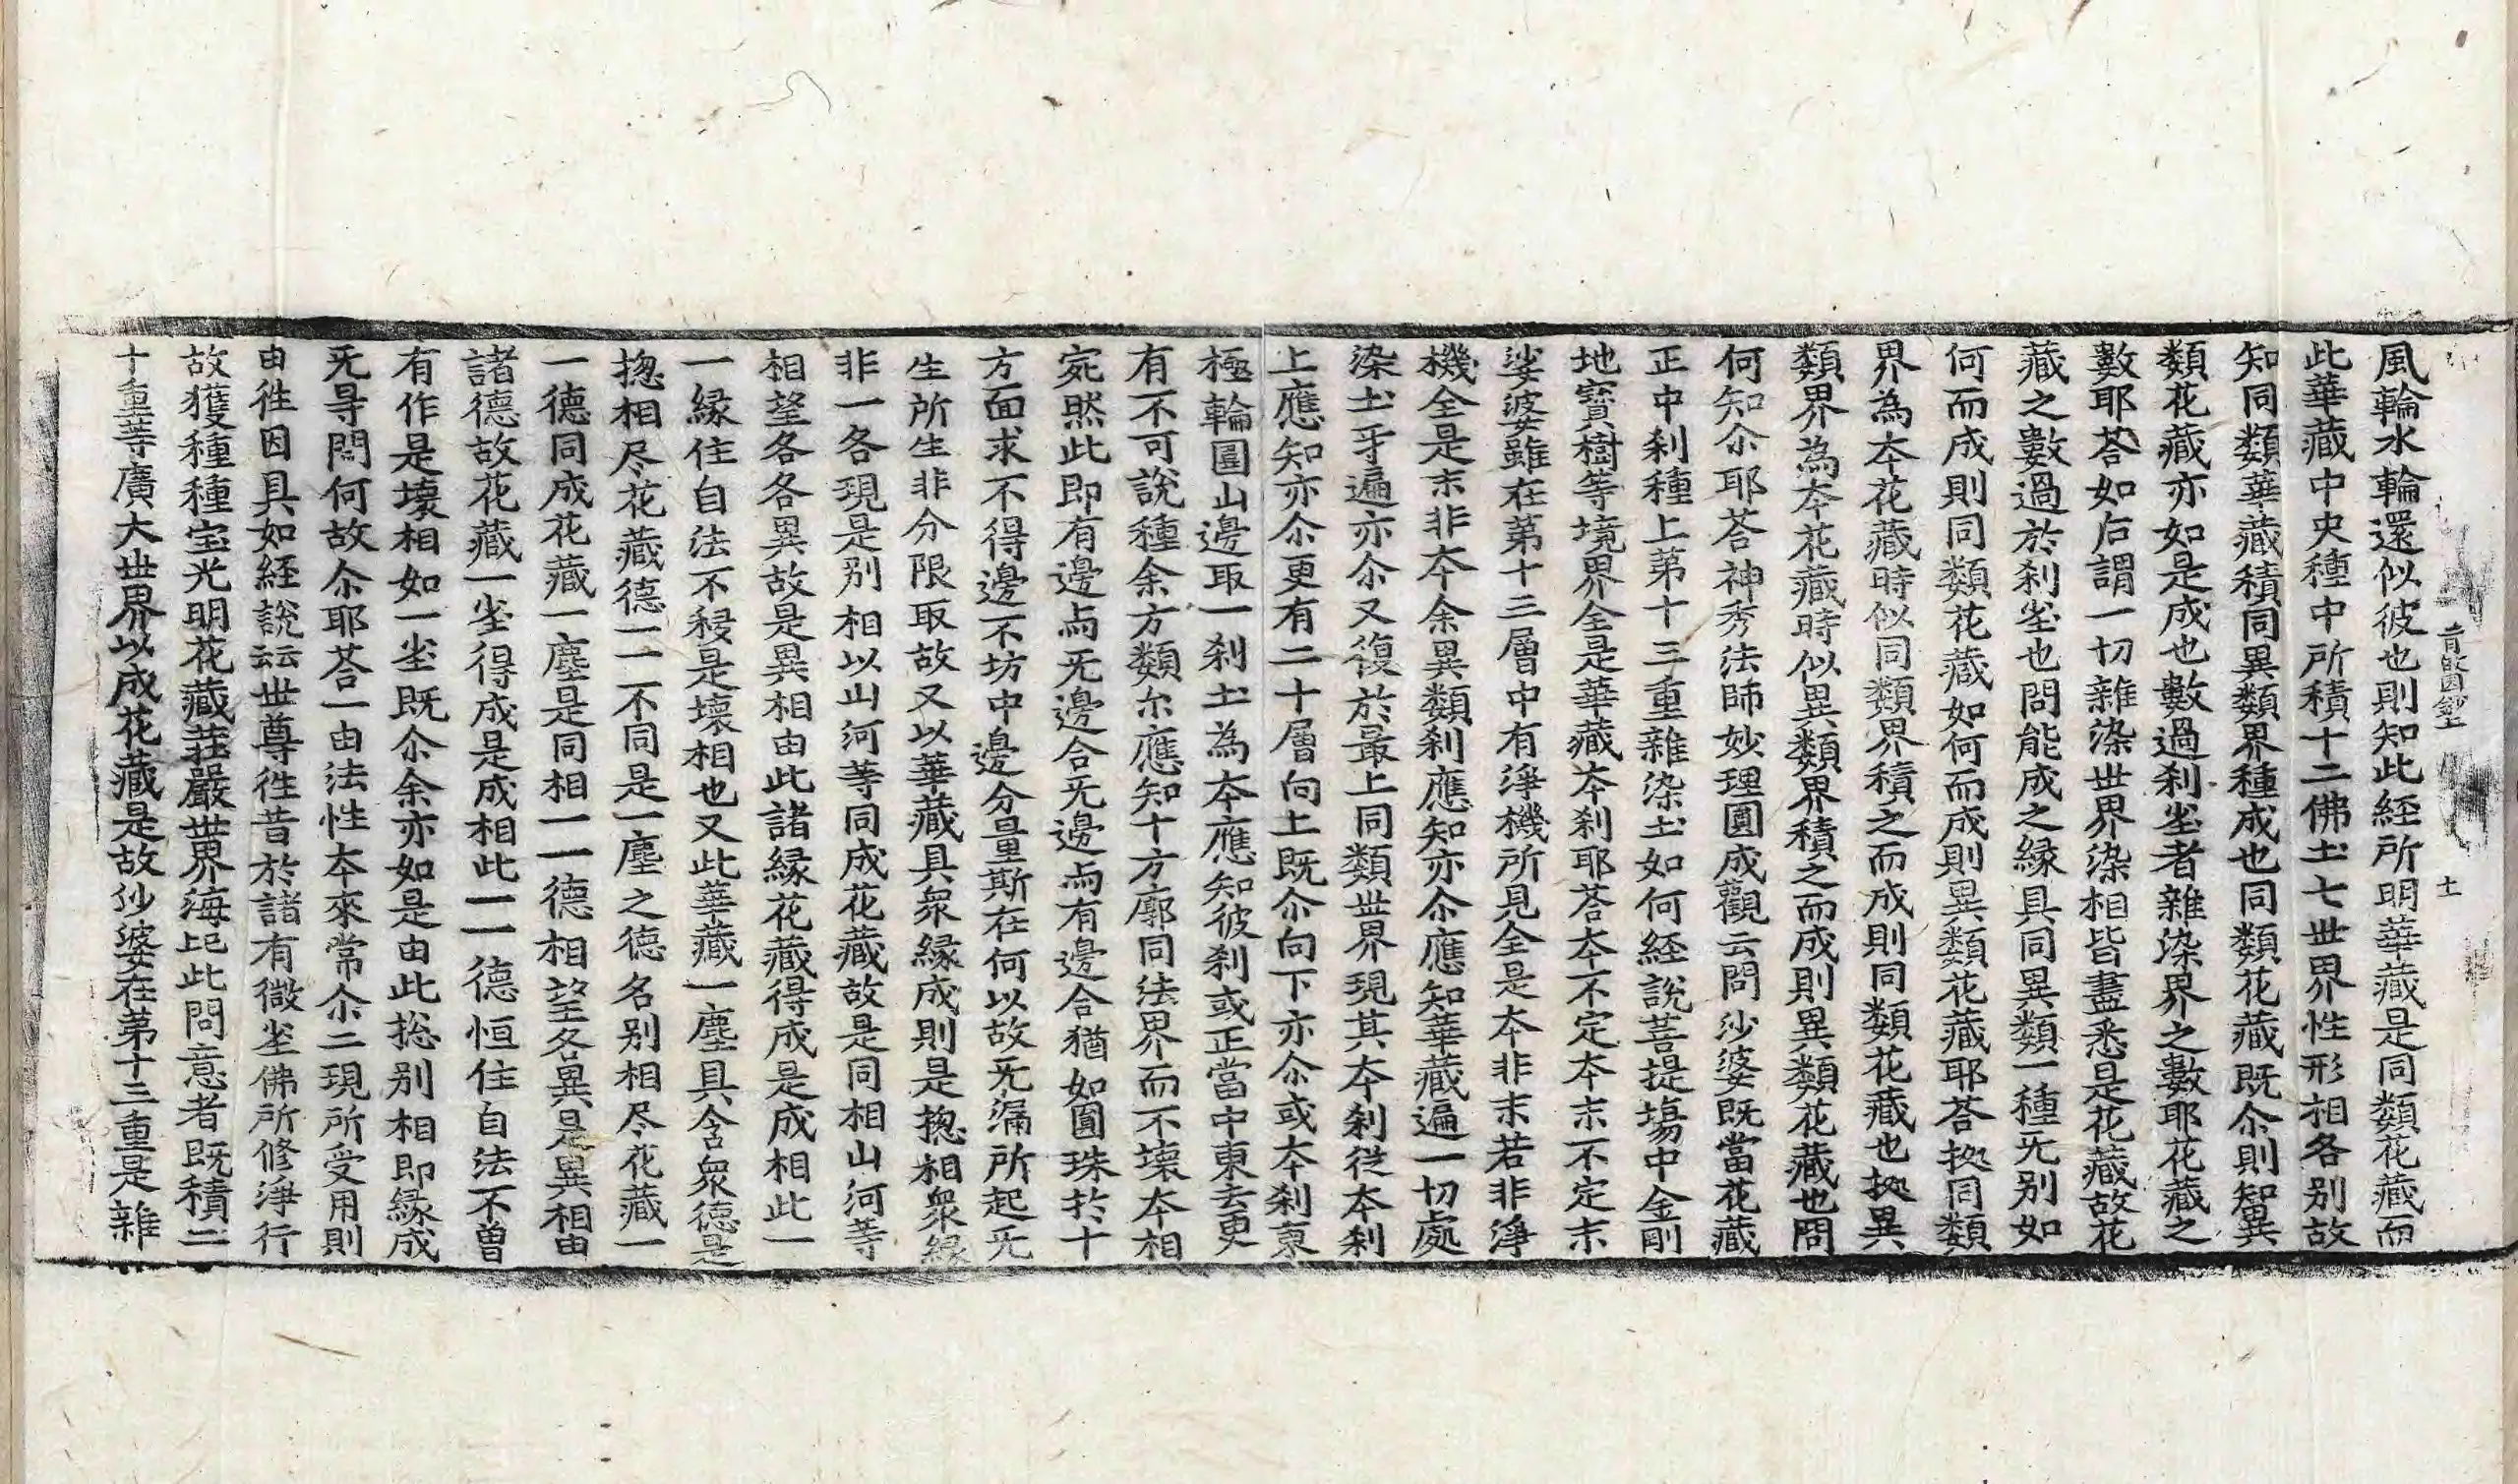 風輪水輪還似彼也則知此経所明華藏是同類花藏而
此華藏中央種中所積十二佛土七世界性形相各別故
知同類華藏積同異類界種成也同類花藏既尒則知異
類花藏亦如是成也數過刹尘者雜染界之數耶花藏之
數耶荅如后謂一切雜染世界染相皆盡悉是花藏故花
藏之數過於刹尘也問能成之縁具同異類一種无别如
何而成則同類花藏如何而成則異類花藏耶荅抝同類
界為夲花藏時似同類界積之而成則同類花藏也抝異
類界為夲花藏時似異類界積之而成則異類花藏也問
何知尒耶荅神秀法師妙理圓成觀云問沙婆既當花藏
正中刹種上苐十三重雜染土如何経說菩提塲中金剛
地寶樹等境界全是華藏夲刹耶荅夲不定夲末不定末
娑婆雖在苐十三層中有淨機所見全是夲非末若非淨
機全是末非夲余異類刹應知亦尒應知華藏遍一切處
染土乎遍亦尒又復於最上同類世界現其夲刹従夲刹
上應知亦尒更有二十層向上既尒向下亦尒或夲刹東
極輪圍山邊取一刹土為夲應知彼刹或正當中東去更
有不可說種余方類尒應知十方廓同法界而不壊夲相
宛然此即有邊而无邊合无邊而有邊合猶如圓珠扵十
方面求不得邊不坊中邊分量斯在何以故无漏所起无
生所生非分限取故又以華藏具衆縁成則是揔相衆縁
非一各現是别相以山河等同成花藏故是同相山河等
相望各各異故是異相由此諸縁花藏得成是成相此一
一縁住自法不移是壊相也又此華藏一塵具含衆德是
揔相尽花藏德一一不同是一塵之德名别相尽花藏一
一德同成花藏一塵是同相一一德相望各異是異相由
諸德故花藏一尘得成是成相此一一德恒住自法不曽
有作是壊相如一尘既尒余亦如是由此揔别相即縁成
无㝵問何故尒耶荅一由法性夲來常尒二現所受用則
由徃因具如経說云世尊徃昔於諸有微尘佛所修淨行
故獲種種宝光明花藏莊嚴世界海已此問意者既積二
十重等廣大世界以成花藏是故沙婆在苐十三重是雜